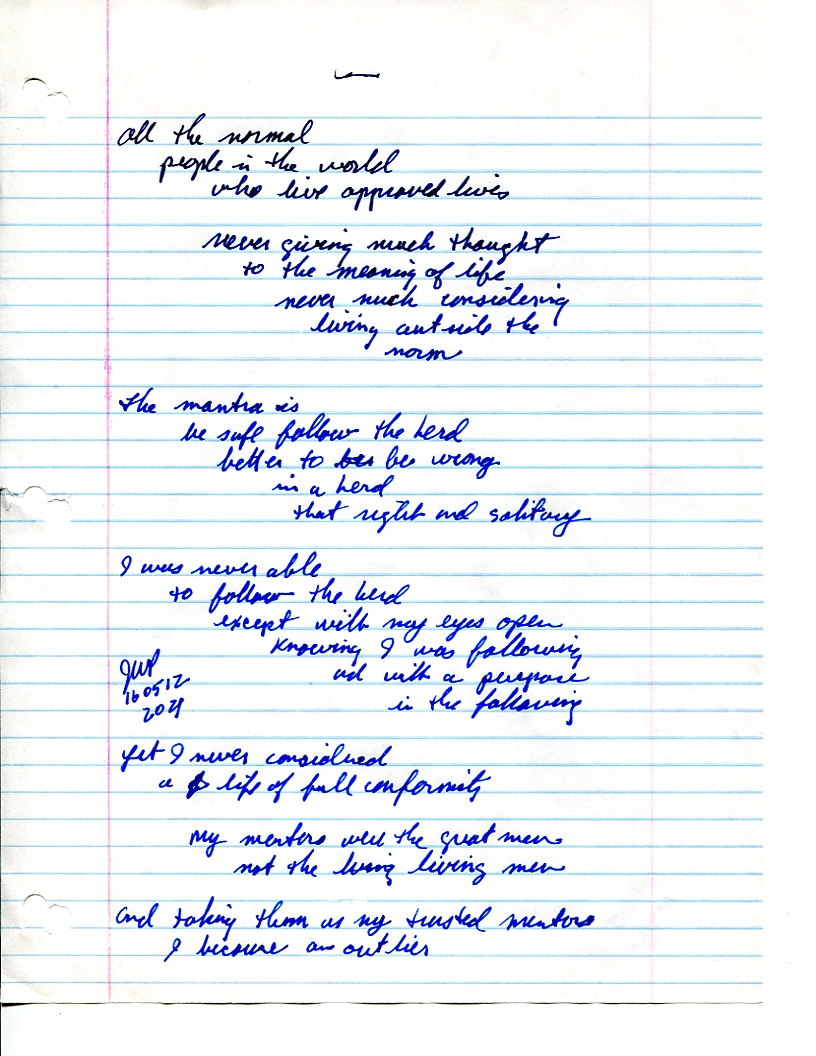 all the normal
people in the world
who live approved lives
never giving much thought
to the meaning of life
never much considering
living outside the
norm
the mantra is
be safe follow the herd
better to be wrong
in a herd
that right and solitary
I was never able
to follow the herd
except with my eyes open
knowing I was following
and with a purpose
in the following
JWP
160512
2021
yet I never considered
a life of full conformity
my mentors were the great men
not the living living men
and taking them as my trusted mentors
I became an outlier